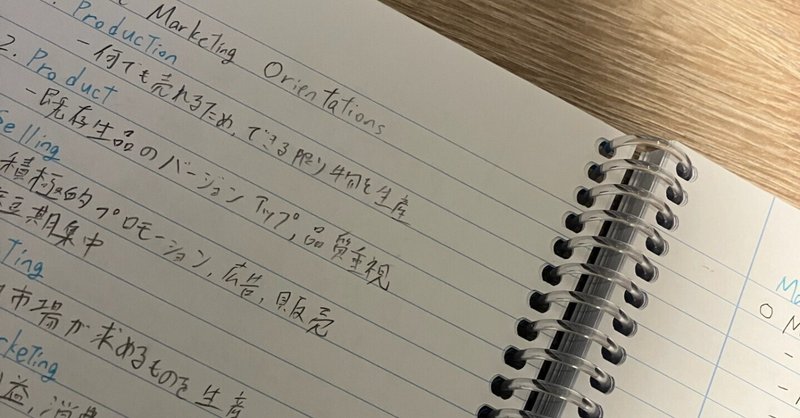 Marketing Orientations
1. Production
- 何でも売れるため、できる限り物を生産
2. Product
- 既存生品のバージョンアップ, 品質重視
Selling
積極的プロモーション, 広告, 販売
短期集中
ting
市場が求めるものを生産
rketing
益, 消費
Ma